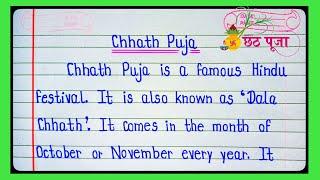 Chhath Puja
छठ पूजा
Chhath Puja is a famous Hindu
festival. It is also known as 'Dala
Chhath'. It comes in the month of
October or November every year. It